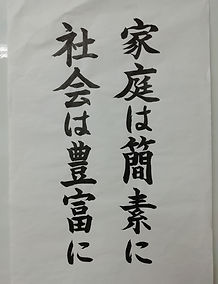 家庭は簡素に
社会は豊富に